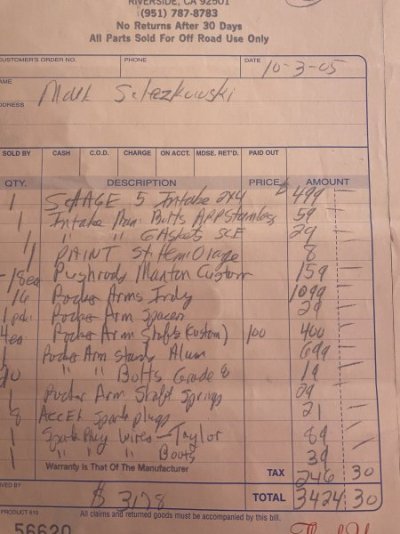 RIVERSIDE, CA 92501
(951) 787-8783
No Returns After 30 Days
All Parts Sold For Off Road Use Only
CUSTOMER'S ORDER NO. PHONE DATE 10-3-05
NAME Mark
ADDRESS
SOLD BY CASH C.O.D. CHARGE ON ACCT. MDSE. RETD. PAID OUT
QTY. DESCRIPTION PRICE AMOUNT
1 STAGE 5 Intake 2x4 $499 —
1 Intake Man. Bolts ARP Stainless 59 —
1 " " GASkets SCE 29 —
11 PAINT St Hemi Orange 8 —
Pushrods Manton Custom 159 —
16 Rocker Arms Indy 1099 —
Rocker Arm Spacer 29 —
4ea Rocker Arm Shafts (Custom) 100 400 —
1 Rocker Arm stands Alum 699 —
" " Bolts Grade 8 19 —
1 Rocker Arm Shaft Springs 29 —
8 ACCEL Spark plugs 21 —
1 Spark Plug Wires – Taylor 89 —
1 " " Boots 39 —
Warranty Is That Of The Manufacturer TAX 246 30
$ 3178 TOTAL 3424 30
PRODUCT 610 All claims and returned goods must be accompanied by this bill.
56620